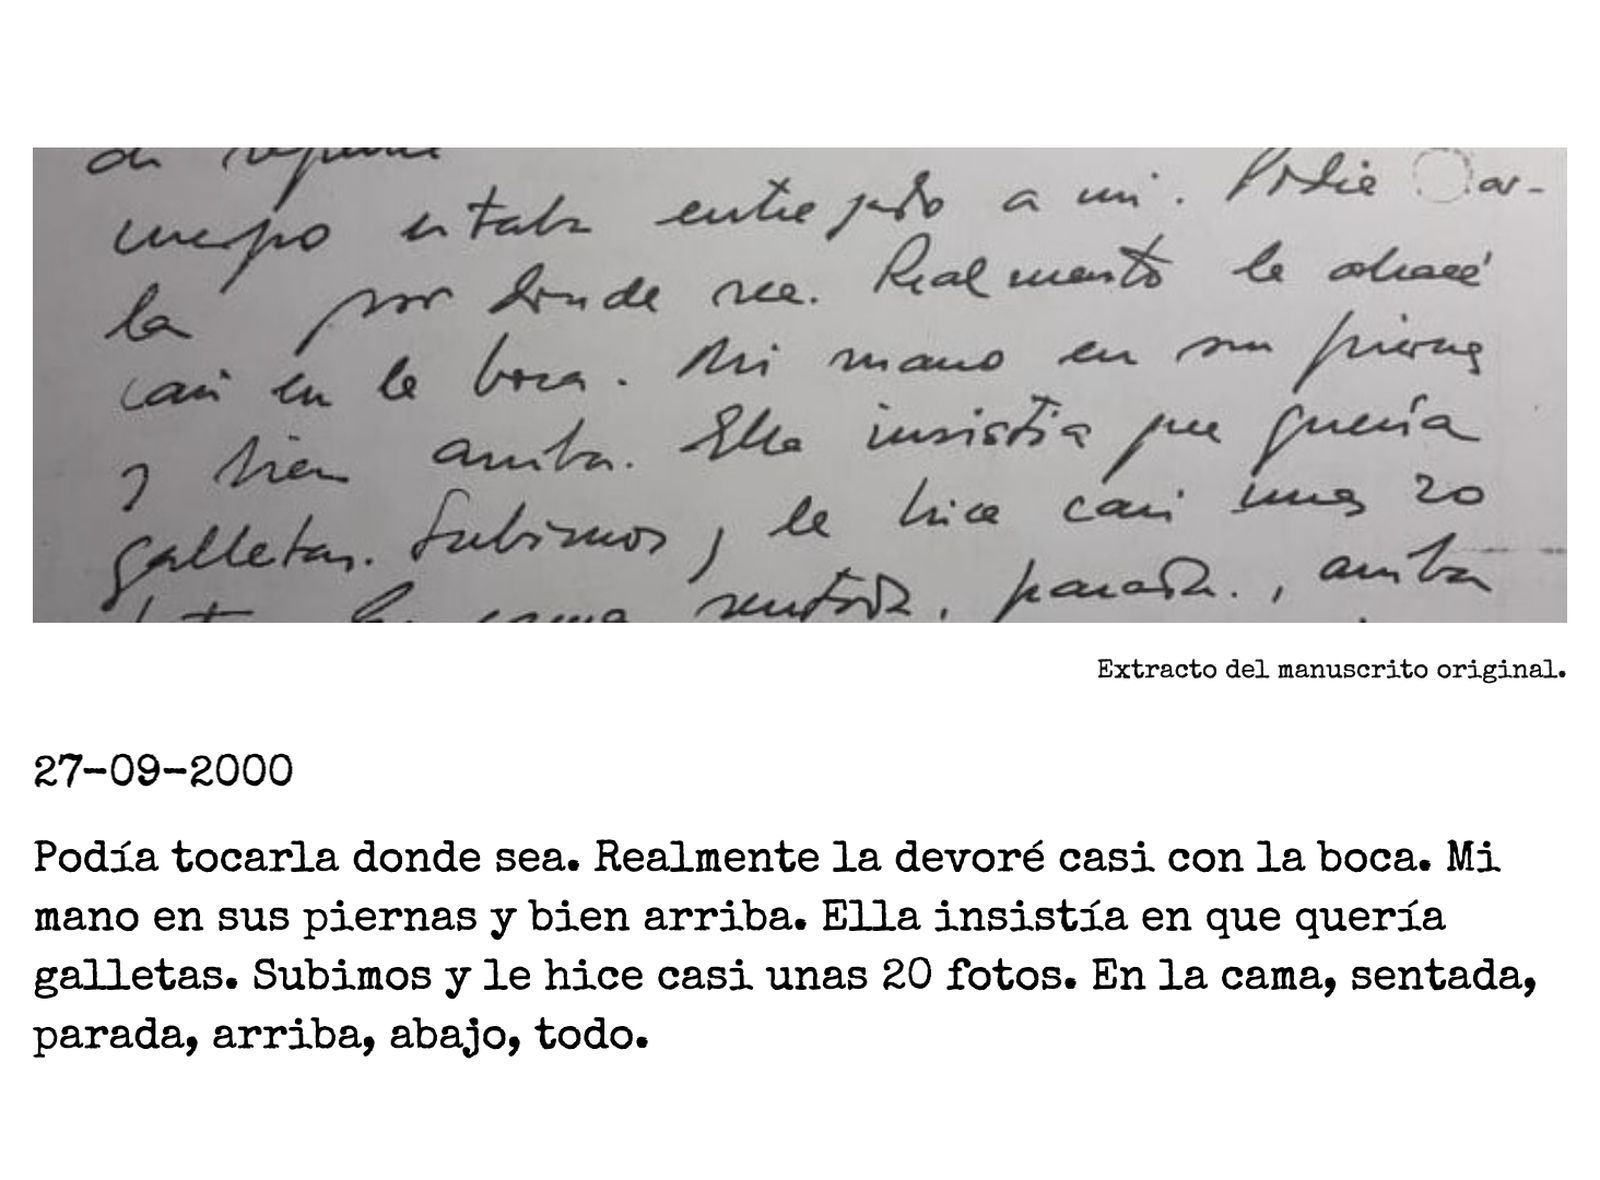 cuerpo estaba entregado a mi. Podía
la por donde sea. Realmente la
casi en la boca. Mi mano en sus piernas
y bien arriba. Ella insistía que quería
galletas. Subimos y le hice casi unas 20
la cama sentada, parada, arriba
Extracto del manuscrito original.
27-09-2000
Podía tocarla donde sea. Realmente la devoré casi con la boca. Mi
mano en sus piernas y bien arriba. Ella insistía en que quería
galletas. Subimos y le hice casi unas 20 fotos. En la cama, sentada,
parada, arriba, abajo, todo.